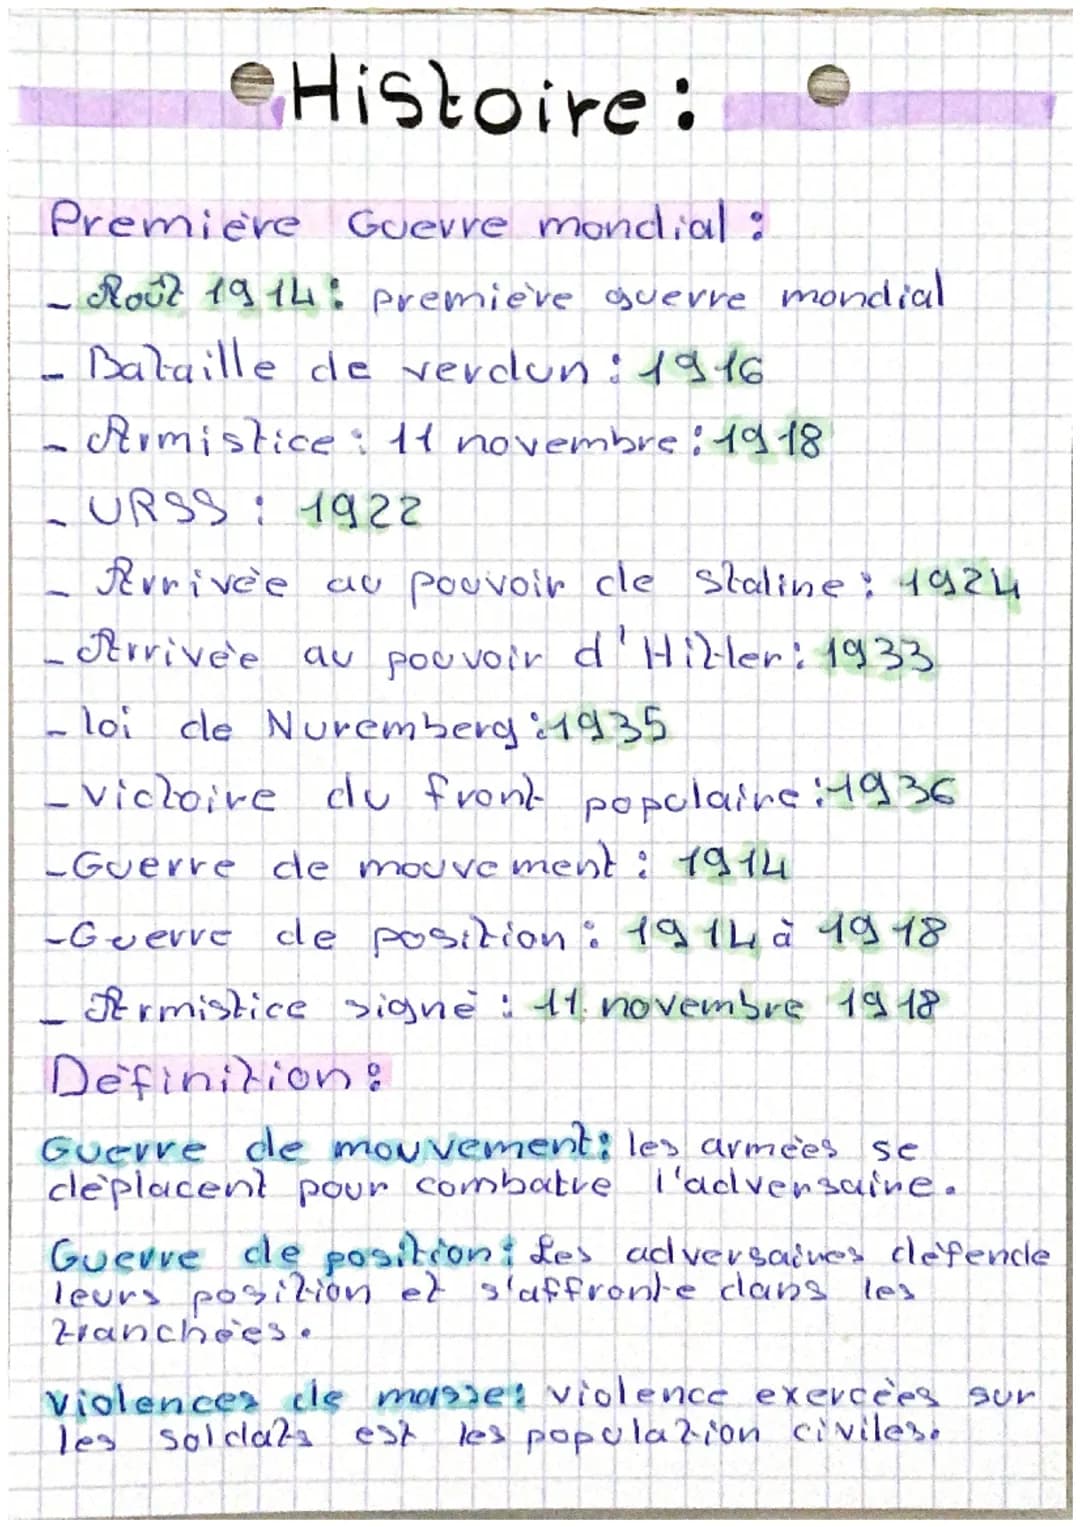 Histoire :
Première Guerre mondial :
- Août 1914 : première guerre mondial
- Bataille de verdun : 1916
- Armistice : 11 novembre : 1918
- URSS : 1922
- Arrivée au pouvoir de Staline : 1924
- Arrivée au pouvoir d'Hitler : 1933
- loi de Nuremberg : 1935
- victoire du front populaire : 1936
- Guerre de mouvement : 1914
- Guerre de position : 1914 à 1918
- Armistice signé : 11 novembre 1918
Définition :
Guerre de mouvement : les armées se
déplacent pour combatre l'adversaire.
Guerre de position : Les adversaires défende
leurs position et s'affronte dans les
tranchées.
Violences de masse : violence exercées sur
les soldats est les population civiles.